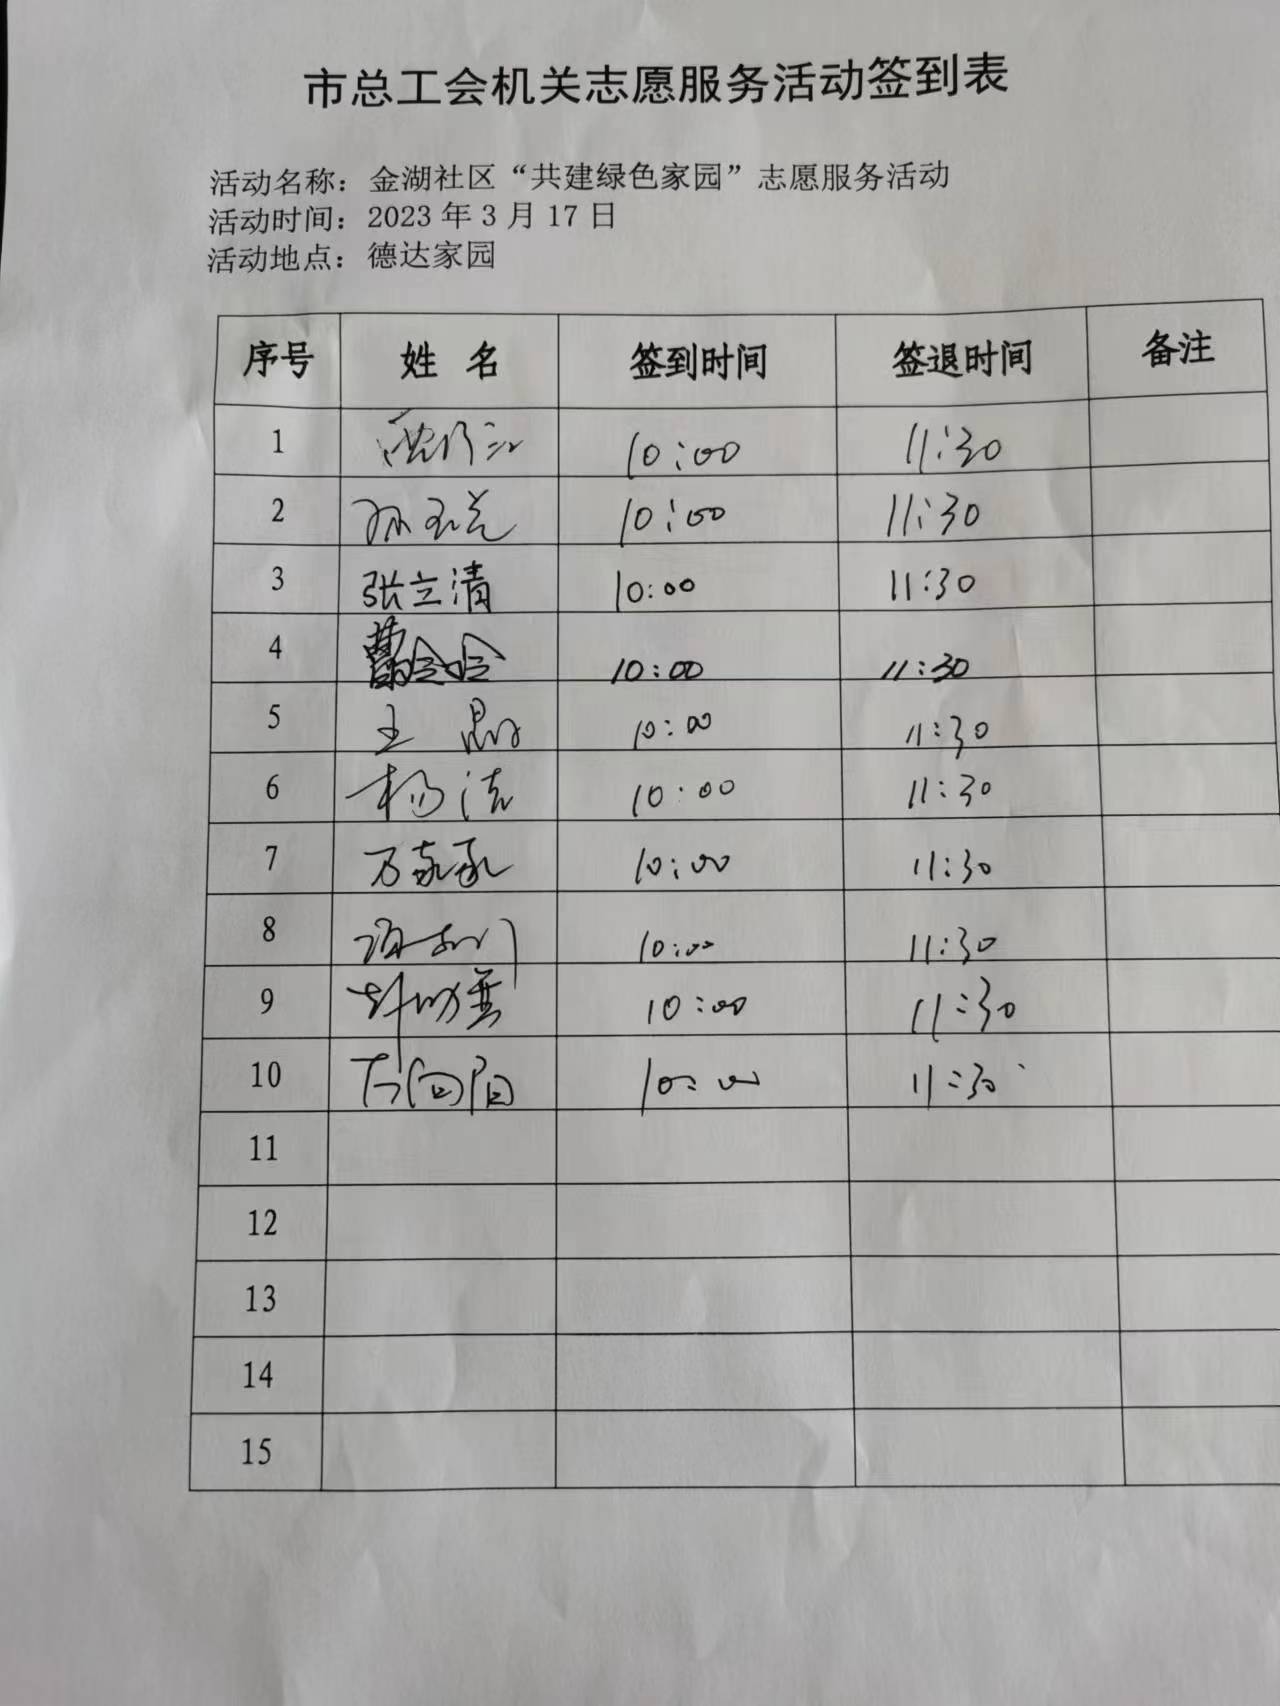 市总工会机关志愿服务活动签到表
活动名称：金湖社区“共建绿色家园”志愿服务活动
活动时间：2023 年 3 月 17 日
活动地点：德达家园
序号 姓 名 签到时间 签退时间 备注
1 10:00 11:30
2 孙 10:00 11:30
3 张立清 10:00 11:30
4 曹 10:00 11:30
5 王 10:00 11:30
6 杨洁 10:00 11:30
7 万 10:00 11:30
8 10:00 11:30
9 10:00 11:30
10 向阳 10:00 11:30
11
12
13
14
15